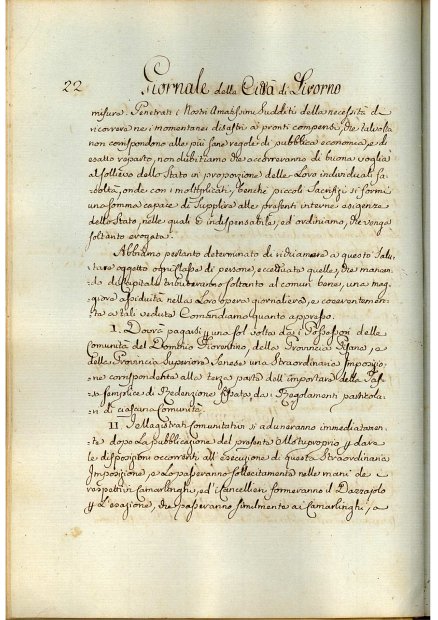 22 Giornale della Città di Livorno
misure. Penetrati i Nostri Amatissimi Sudditi della necessità di
ricorrere ne i momentanei disastri a pronti compensi, che talvolta
non corrispondono alle più sane regole di pubblica economia, e di
esatto reparto, non dubitiamo che accorreranno di buona voglia
al sollievo dello Stato in proporzione delle Loro individuali fa-
coltà, onde con i moltiplicati, benchè piccoli Sacrifizi si formi
una somma capace di supplire alle presenti interne esigenze
dello Stato, nelle quali è indispensabile, ed ordiniamo, che venga
soltanto erogata.
Abbiamo pertanto determinato di richiamare a questo Salu-
tare oggetto ogni classe di persone, eccettuate quelle, che mancan-
do di Capitali tributeranno soltanto al comun bene, una mag-
giore assiduità nella Loro opera giornaliera, e coerentemen-
te a tali vedute Comandiamo quanto appresso.
I. Dovrà pagarsi p una sol volta da i Possessori delle
Comunità del Dominio Fiorentino, della Provincia Pisana, e
della Provincia Superiore Senese una Straordinaria Imposizio-
ne corrispondente alla terza parte dell'importare della Tas-
sa semplice di Redenzione fissata da i Regolamenti particola-
ri di ciascuna Comunità.
II. I Magistrati Comunitativi si aduneranno immediatamen-
te dopo la pubblicazione del presente Motuproprio p dare
le disposizioni occorrenti all'esecuzione di questa Straordinaria
Imposizione, e Lo passeranno sollecitamente nelle mani de i
respettivi Camarlinghi, ed i Cancellieri formeranno il Dazzajolo
p L'esazione, che passeranno similmente a i Camarlinghi, a